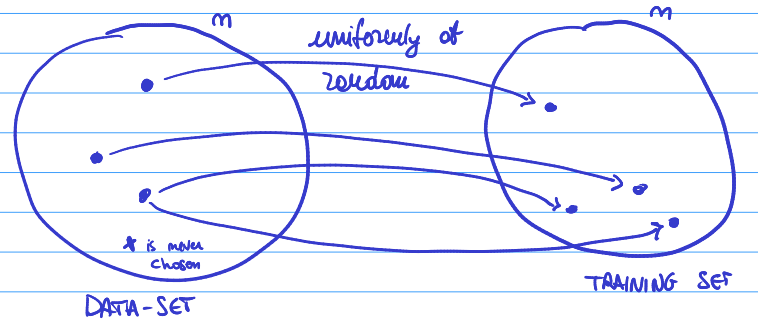 n
n
uniformly at
random
* is never
chosen
DATA-SET
TRAINING SET